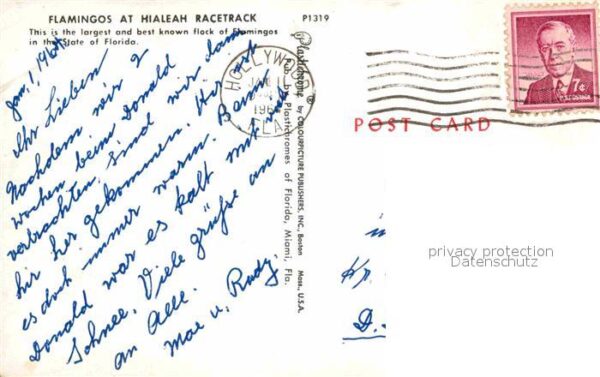 FLAMINGOS AT HIALEAH RACETRACK
P1319
This is the largest and best known flock of Flamingos
in the State of Florida.
Jan, 1, 1964
Ihr Lieben
Nachdem wir 2
wochen beim Donald
verbrachten, sind wir dann
hir her gekommen. Hir ist
es doch immer warm. Beim
Donald war es kalt mit
Schnee. Viele grüße an
an Alle.
Max u. Rudy.
Plastichrome ® by COLOURPICTURE PUBLISHERS, INC., Boston Mass., U.S.A.
Pub. by Plastichromes of Florida, Miami, Fla.
HOLLYWOOD
JAN
196
FLA.
7¢
U.S. POSTAGE
POST CARD
privacy protection
Datenschutz